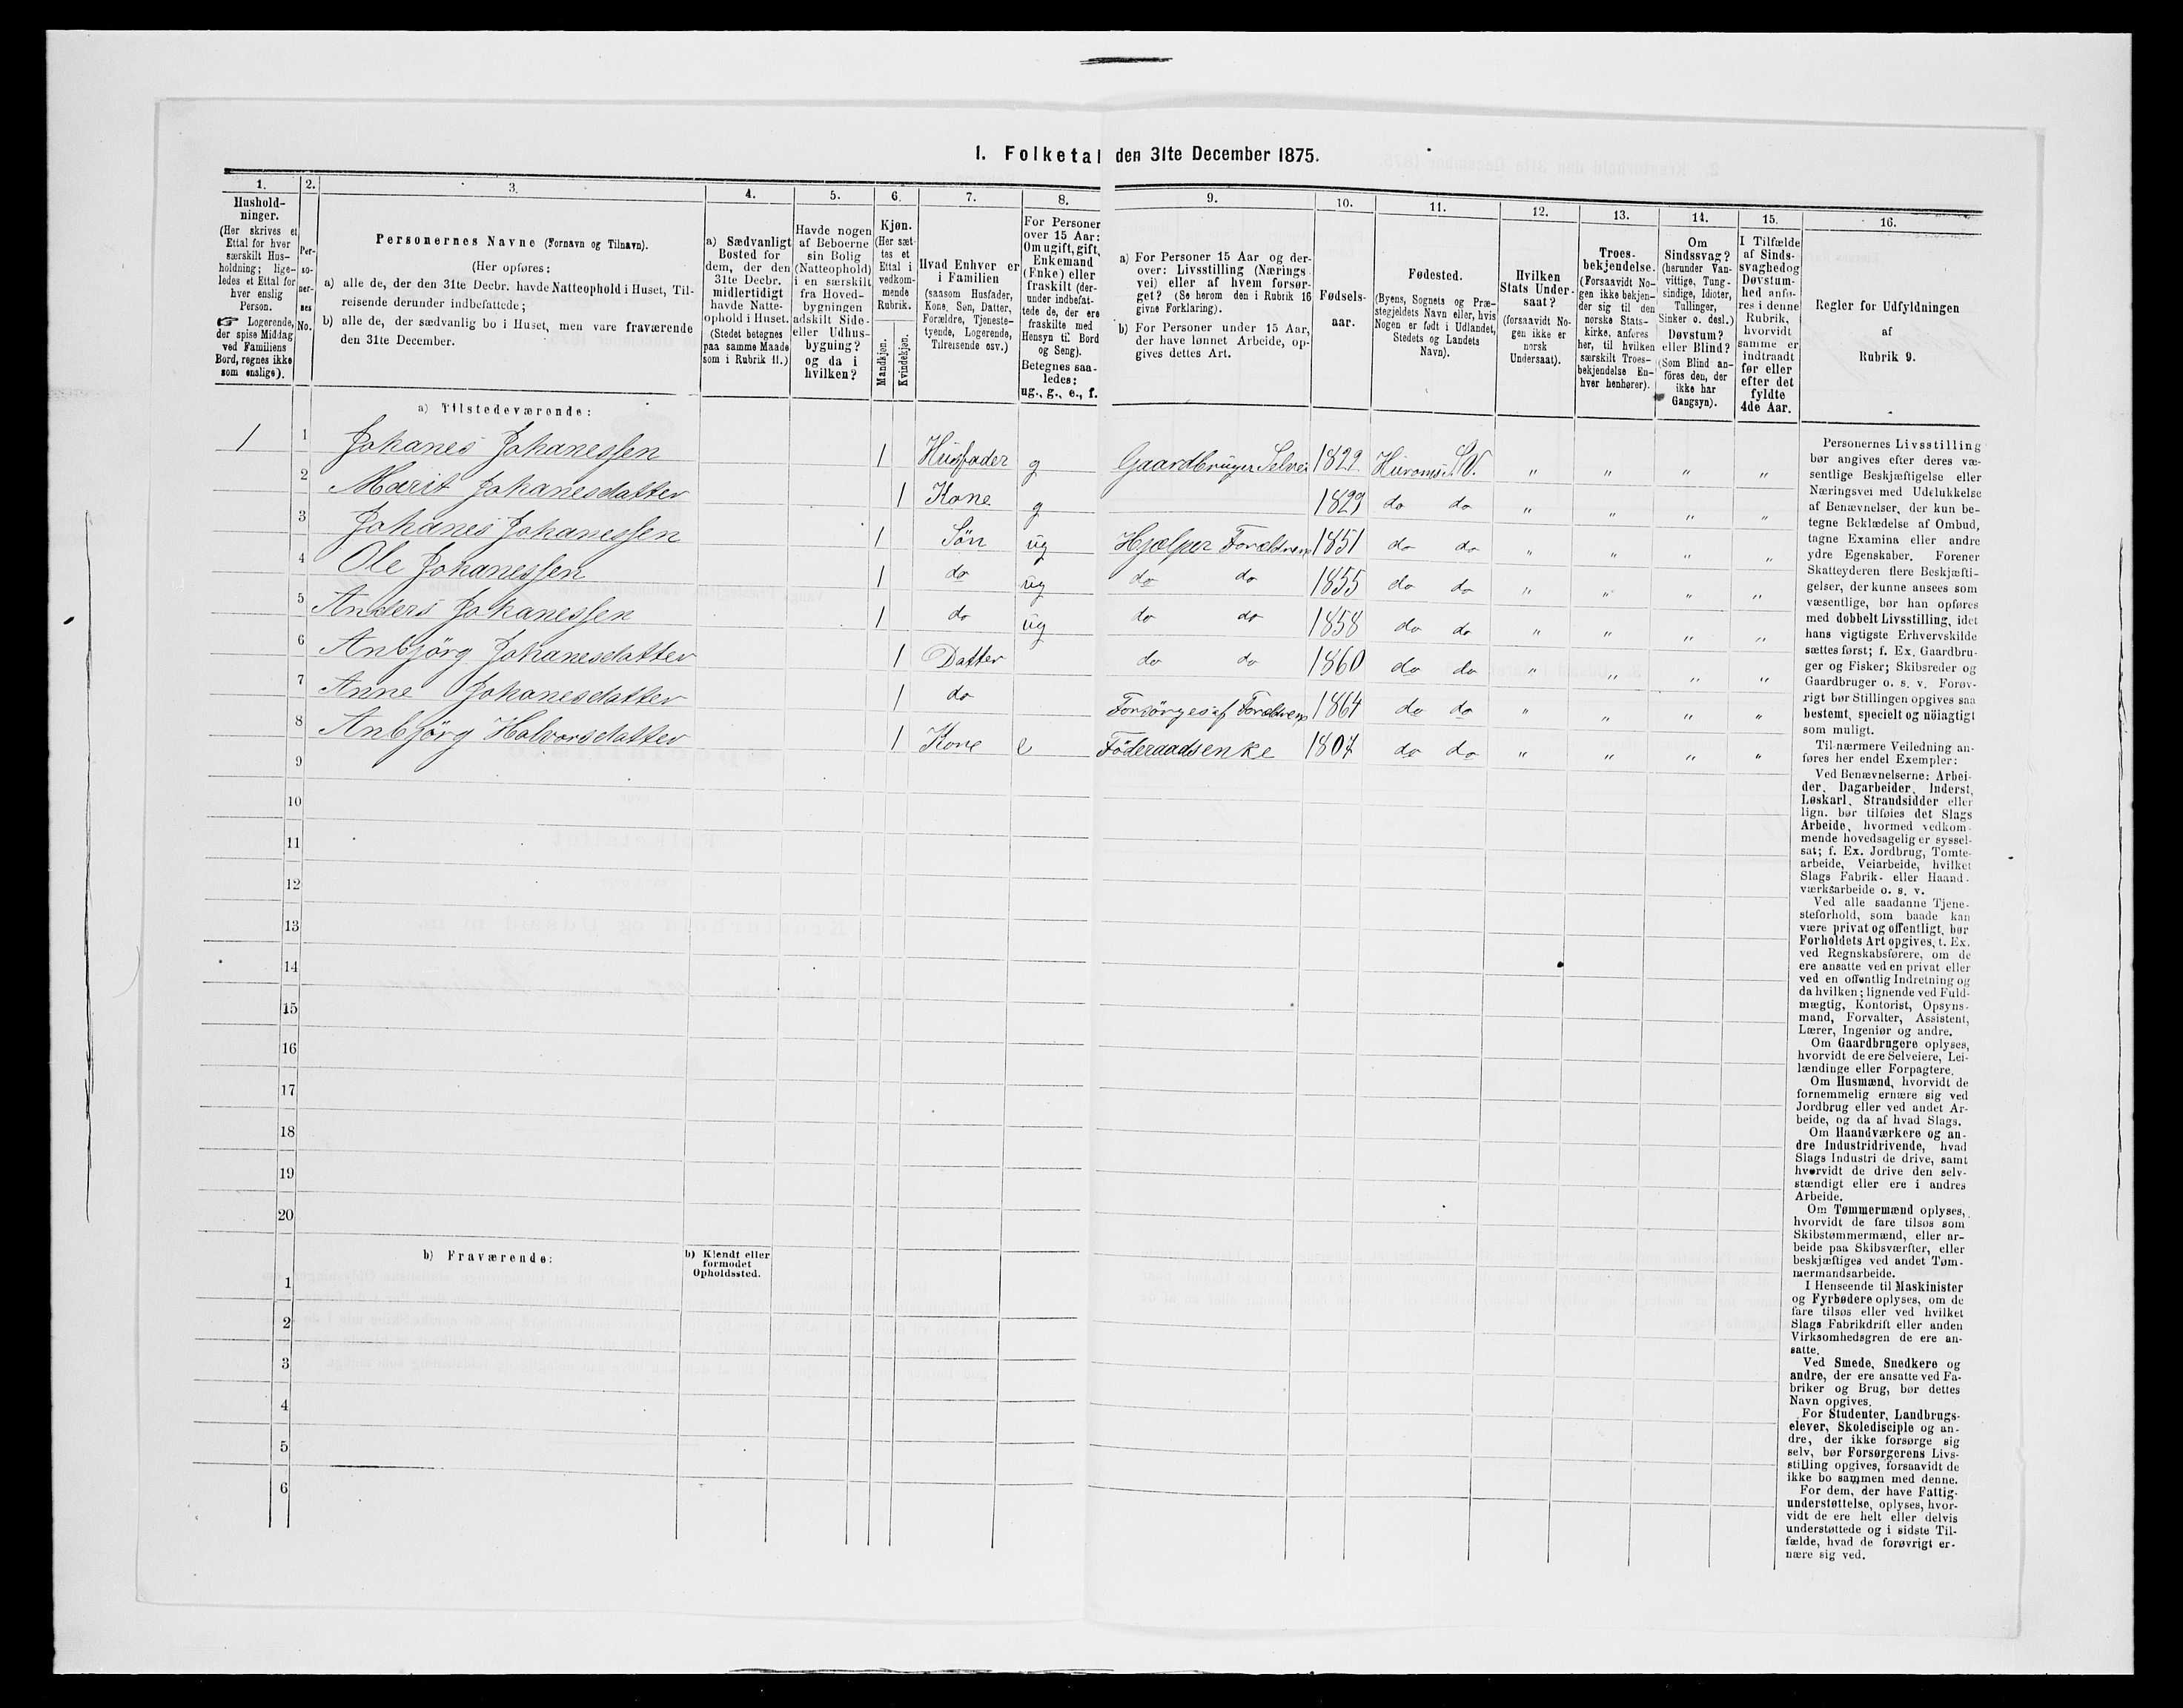 1. Folketal den 31te December 1875.
1. 2. 3. 4. 5. 6. 7. 8. 9. 10. 11. 12. 13. 14. 15. 16.
Hushold-
ninger.
(Her skrives et
Ettal for hver
særskilt Hus-
holdning; lige-
ledes et Ettal for
hver enslig
Person.
☞ Logerende,
der spise Middag
ved Familiens
Bord, regnes ikke
som enslige).
Per-
so-
ner-
nes
No.
Personernes Navne (Fornavn og Tilnavn).
(Her opføres:
a) alle de, der den 31te Decbr. havde Natteophold i Huset, Til-
reisende derunder indbefattede;
b) alle de, der sædvanlig bo i Huset, men vare fraværende
den 31te December.
a) Sædvanligt
Bosted for
dem, der den
31te Decbr.
midlertidigt
havde Natte-
ophold i Huset.
(Stedet betegnes
paa samme Maade
som i Rubrik 11.)
Havde nogen
af Beboerne
sin Bolig
(Natteophold)
i en særskilt
fra Hoved-
bygningen
adskilt Side-
eller Udhus-
bygning?
og da i
hvilken?
Kjøn.
(Her sæt-
tes et
Ettal i
vedkom-
mende
Rubrik.
Mandkjøn.
Kvindekjøn.
Hvad Enhver er
i Familien
(saasom Husfader,
Kone, Søn, Datter,
Forældre, Tjeneste-
tyende, Logerende,
Tilreisende osv.)
For Personer
over 15 Aar:
Om ugift, gift,
Enkemand
(Enke) eller
fraskilt (der-
under indbefat-
tede de, der ere
fraskilte med
Hensyn til Bord
og Seng).
Betegnes saa-
ledes:
ug., g., e., f.
a) For Personer 15 Aar og der-
over: Livsstilling (Nærings-
vei) eller af hvem forsør-
get? (Se herom den i Rubrik 16
givne Forklaring).
b) For Personer under 15 Aar,
der have lønnet Arbeide, op-
gives dettes Art.
Fødsels-
aar.
Fødested.
(Byens, Sognets og Præ-
stegjeldets Navn eller, hvis
Nogen er født i Udlandet,
Stedets og Landets
Navn).
Hvilken
Stats Under-
saat?
(forsaavidt No-
gen ikke er
norsk
Undersaat).
Troes-
bekjendelse.
(Forsaavidt No-
gen ikke bekjen-
der sig til den
norske Stats-
kirke, anføres
her, til hvilken
særskilt Troes-
bekjendelse En-
hver henhører).
Om
Sindssvag?
(herunder Van-
vittige, Tung-
sindige, Idioter,
Tullinger,
Sinker o. desl.)
Døvstum?
eller Blind?
(Som Blind an-
føres den, der
ikke har
Gangsyn).
I Tilfælde
af Sinds-
svaghed og
Døvstum-
hed anfø-
res i denne
Rubrik,
hvorvidt
samme er
indtraadt
før eller
efter det
fyldte
4de Aar.
Regler for Udfyldningen
af
Rubrik 9.
a) Tilstedeværende:
1 1 Johanes Johanessen 1 Husfader g Gaardbruger Selvei 1829 Huroms S.V. " " " "
2 Marit Johanesdatter 1 Kone g 1829 do do " " " "
3 Johanes Johanessen 1 Søn ug Hjælper Forældrene 1851 do do " " " "
4 Ole Johanessen 1 do ug do do 1855 do do " " " "
5 Anders Johanessen 1 do ug do do 1858 do do " " " "
6 Anbjörg Johanesdatter 1 Datter do do 1860 do do " " " "
7 Anne Johanesdatter 1 do Forsörges af Forældrene 1864 do do " " " "
8 Anbjörg Halvorsdatter 1 Kone e Föderaadsenke 1807 do do " " " "
9
10
11
12
13
14
15
16
17
18
19
20
b) Fraværende:
b) Kjendt eller
formodet
Opholdssted.
1
2
3
4
5
6
Personernes Livsstilling
bør angives efter deres væ-
sentlige Beskjæftigelse eller
Næringsvei med Udelukkelse
af Benævnelser, der kun be-
tegne Beklædelse af Ombud,
tagne Examina eller andre
ydre Egenskaber. Forener
Skatteyderen flere Beskjæfti-
gelser, der kunne ansees som
væsentlige, bør han opføres
med dobbelt Livsstilling, idet
hans vigtigste Erhvervskilde
sættes først; f. Ex. Gaardbru-
ger og Fisker; Skibsreder og
Gaardbruger o. s. v. Forøv-
rigt bør Stillingen opgives saa
bestemt, specielt og nöiagtigt
som muligt.
Til nærmere Veiledning an-
føres her endel Exempler:
Ved Benævnelserne: Arbei-
der, Dagarbeider, Inderst,
Løskarl, Strandsidder eller
lign. bør tilføies det Slags
Arbeide, hvormed vedkom-
mende hovedsagelig er syssel-
sat; f. Ex. Jordbrug, Tomte-
arbeide, Veiarbeide, hvilket
Slags Fabrik- eller Haand-
værksarbeide o. s. v.
Ved alle saadanne Tjene-
steforhold, som baade kan
være privat og offentligt, bør
Forholdets Art opgives, t. Ex.
ved Regnskabsførere, om de
ere ansatte ved en privat eller
ved en offentlig Indretning og
da hvilken; lignende ved Fuld-
mægtig, Kontorist, Opsyns-
mand, Forvalter, Assistent,
Lærer, Ingeniør og andre.
Om Gaardbrugere oplyses,
hvorvidt de ere Selveiere, Lei-
lændinge eller Forpagtere.
Om Husmænd, hvorvidt de
fornemmelig ernære sig ved
Jordbrug eller ved andet Ar-
beide, og da af hvad Slags.
Om Haandværkere og an-
dre Industridrivende, hvad
Slags Industri de drive, samt
hvorvidt de drive den selv-
stændigt eller ere i andres
Arbeide.
Om Tømmermænd oplyses,
hvorvidt de fare tilsøs som
Skibstømmermænd, eller ar-
beide paa Skibsværfter, eller
beskjæftiges ved andet Tøm-
mermandsarbeide.
I Henseende til Maskinister
og Fyrbødere oplyses, om de
fare tilsøs eller ved hvilket
Slags Fabrikdrift eller anden
Virksomhedsgren de ere an-
satte.
Ved Smede, Snedkere og
andre, der ere ansatte ved Fa-
briker og Brug, bør dettes
Navn opgives.
For Studenter, Landbrugs-
elever, Skoledisciple og an-
dre, der ikke forsørge sig
selv, bør Forsørgerens Livs-
stilling opgives, forsaavidt de
ikke bo sammen med denne.
For dem, der have Fattig-
understøttelse, oplyses, hvor-
vidt de ere helt eller delvis
understøttede og i sidste Til-
fælde, hvad de forøvrigt er-
nære sig ved.